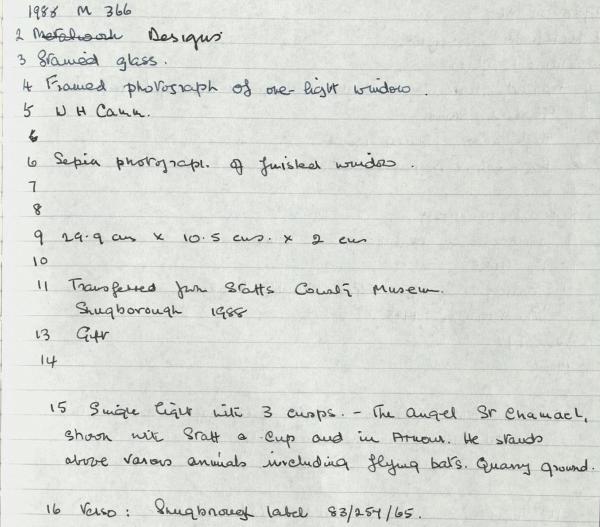 1988 M 366
2 Metalwork Designs
3 Stained glass.
4 Framed photograph of one-light window.
5 W H Cann.
6
6 Sepia photograph of finished window.
7
8
9 29.9 cms x 10.5 cms. x 2 cms
10
11 Transferred from Staffs County Museum.
Shugborough 1988
13 Gift
14
15 Single light with 3 cusps. - The angel St Chamael,
shown with Staff a Cup and in Armour. He stands
above various animals including flying bats. Quarry ground.
16 Verso: Shugborough label 83/254/65.